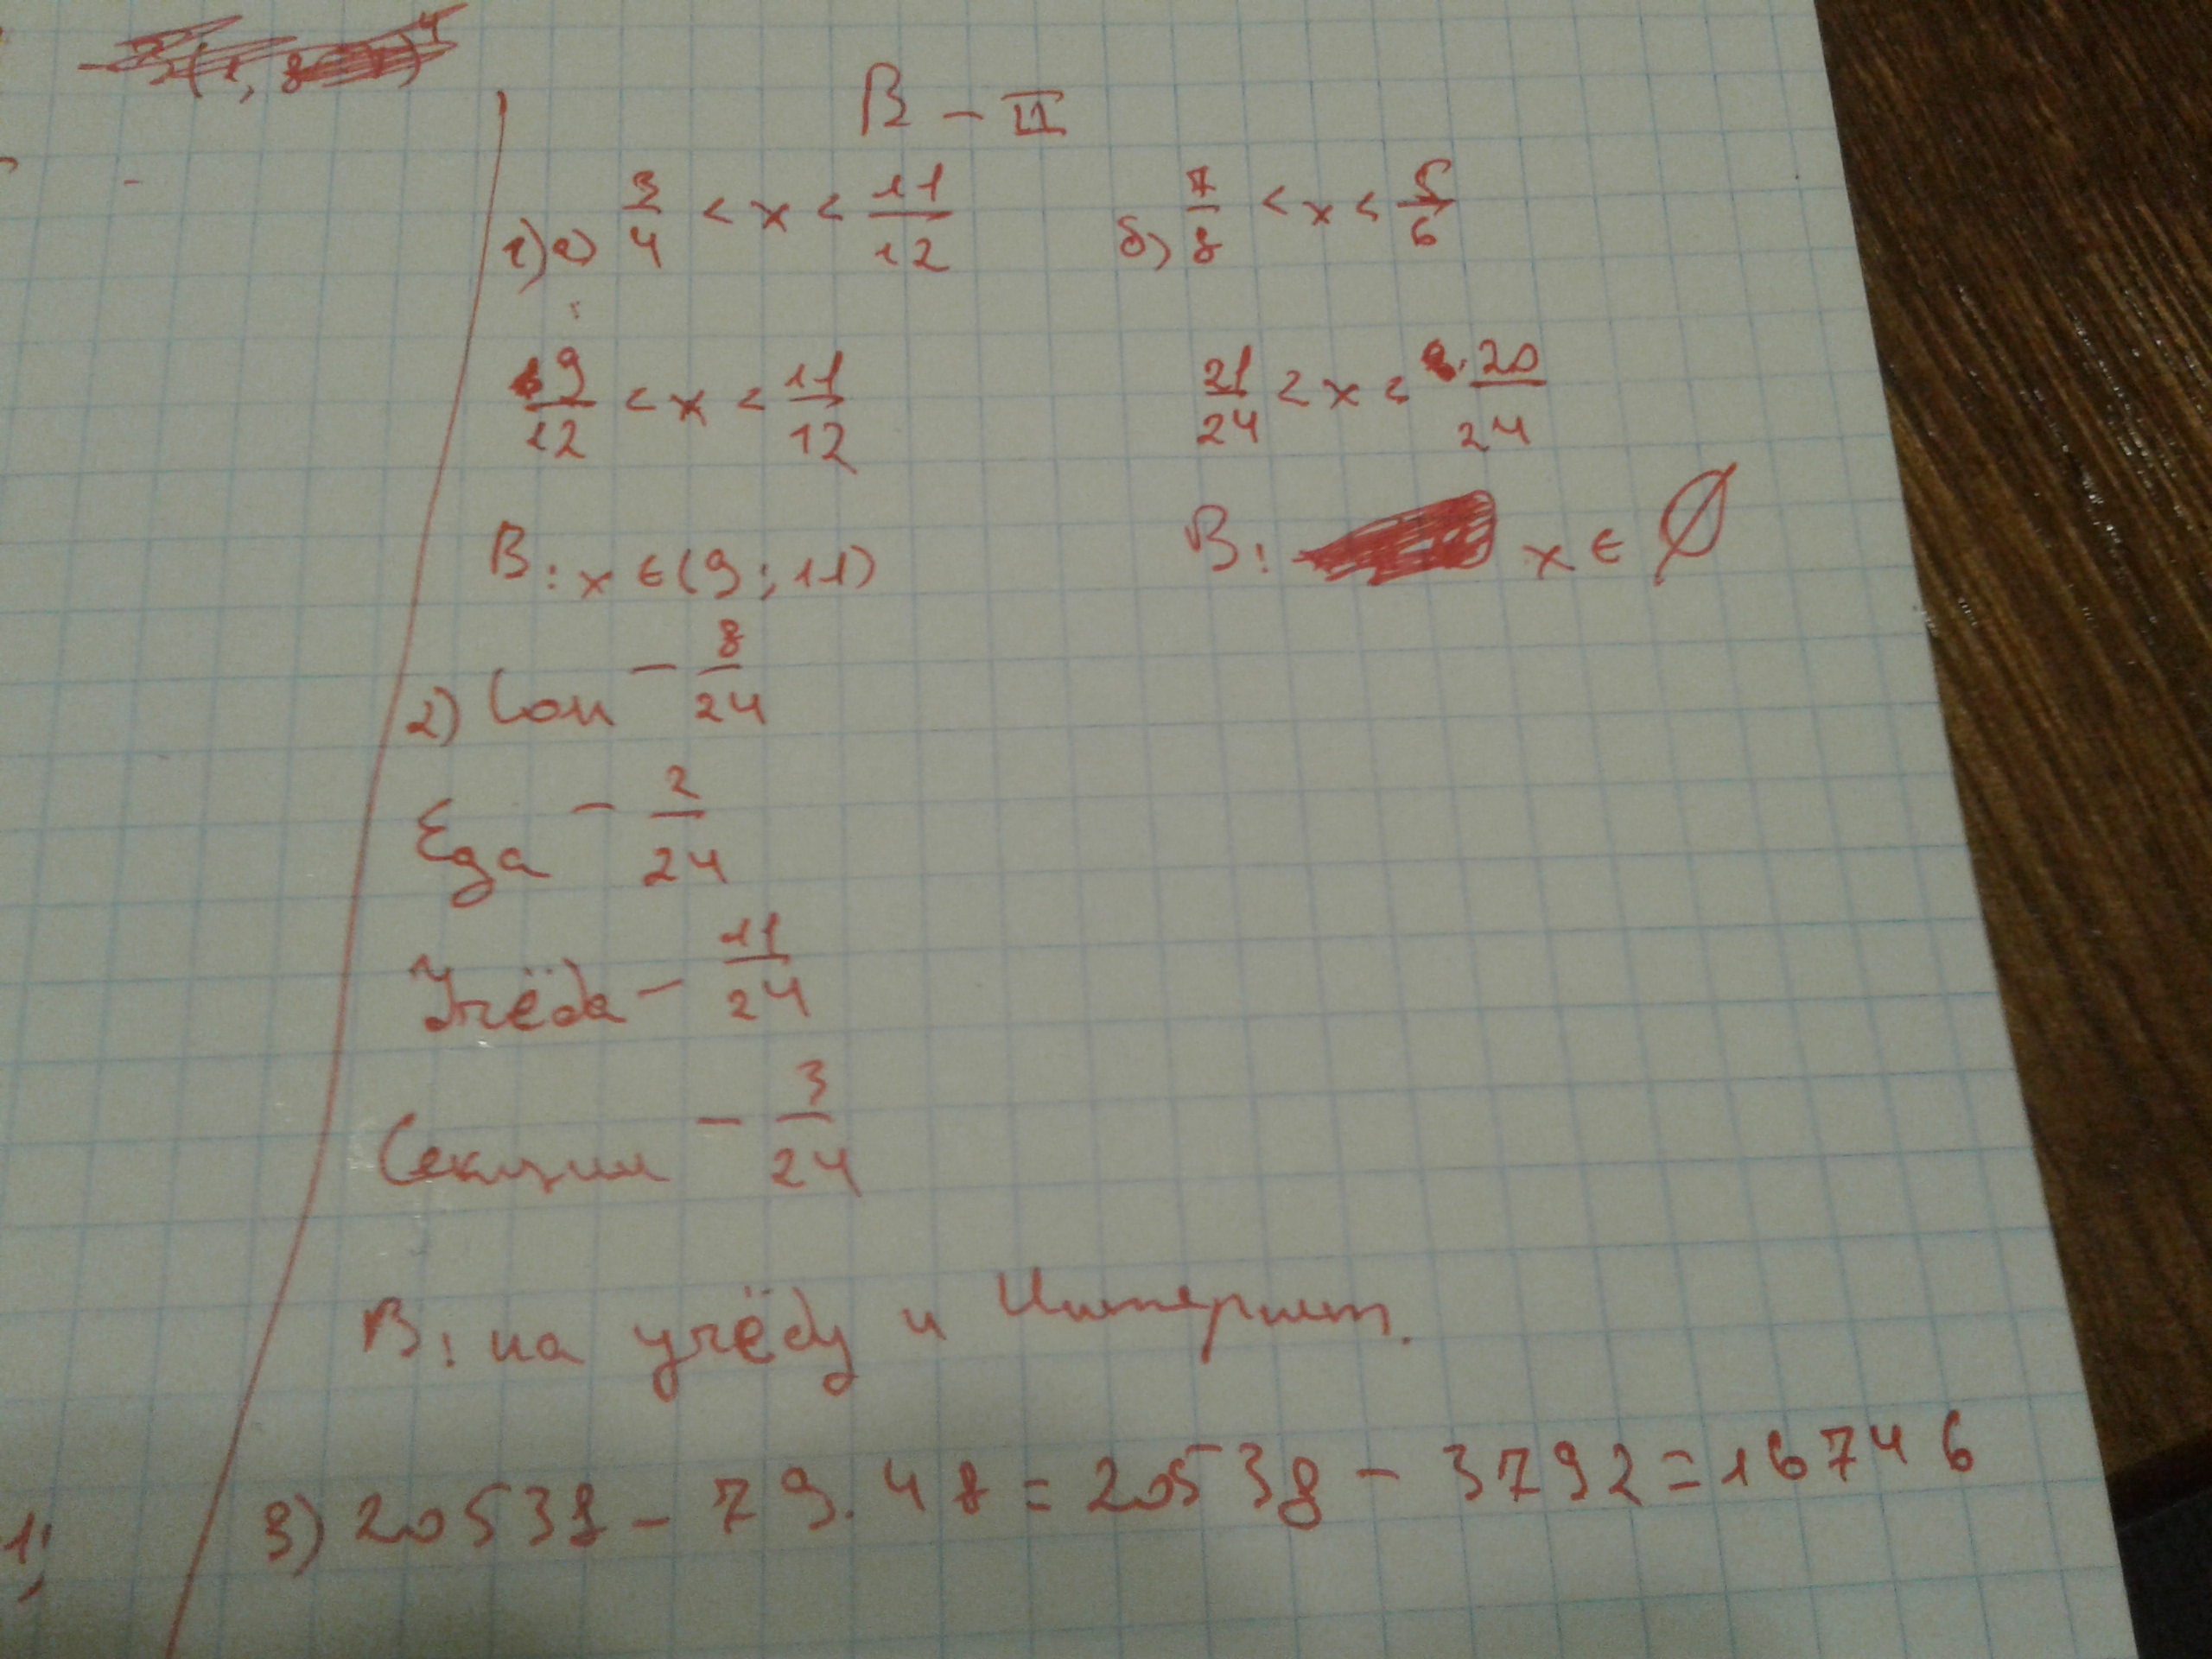 В - II
1) а) 3/4 < x < 11/12 б) 7/8 < x < 5/6
9/12 < x < 11/12 21/24 < x < 20/24
В: x ∈ (9; 11) В: x ∈ ∅
2) Сон - 8/24
Еда - 2/24
Учёба - 11/24
Секции - 3/24
В: на учёбу и Интернет.
3) 20538 - 79 · 48 = 20538 - 3792 = 16746